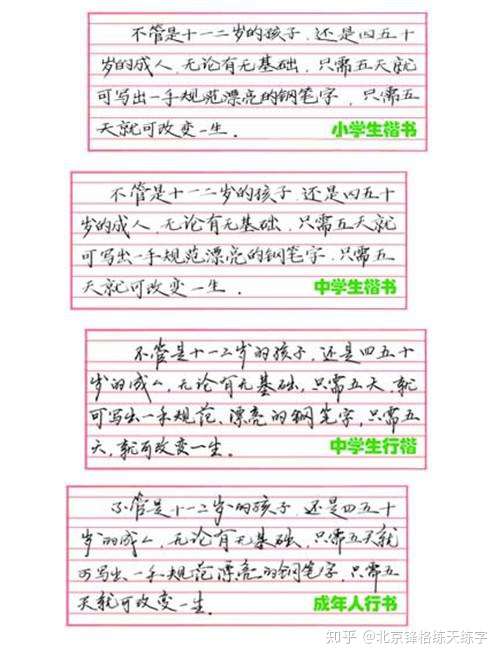 不管是十一二岁的孩子.还是四五十
岁的成人.无论有无基础.只需五天就
可写出一手规范漂亮的钢笔字,只需五
天就可改变一生.
小学生楷书
不管是十一二岁的孩子.还是四五十
岁的成人.无论有无基础.只需五天就
可写出一手规范漂亮的钢笔字.只需五
天就可改变一生.
中学生楷书
不管是十一二岁的孩子,还是四五十
岁的成人,无论有无基础,只需五天,就
可写出一手规范、漂亮的钢笔字,只需五
天,就可改变一生.
中学生行楷
不管是十一二岁的孩子.还是四五十
岁的成人,无论有无基础.只需五天就
可写出一手规范漂亮的钢笔字.只需五
天就可改变一生.
成年人行书
知乎 @北京锋格练天练字